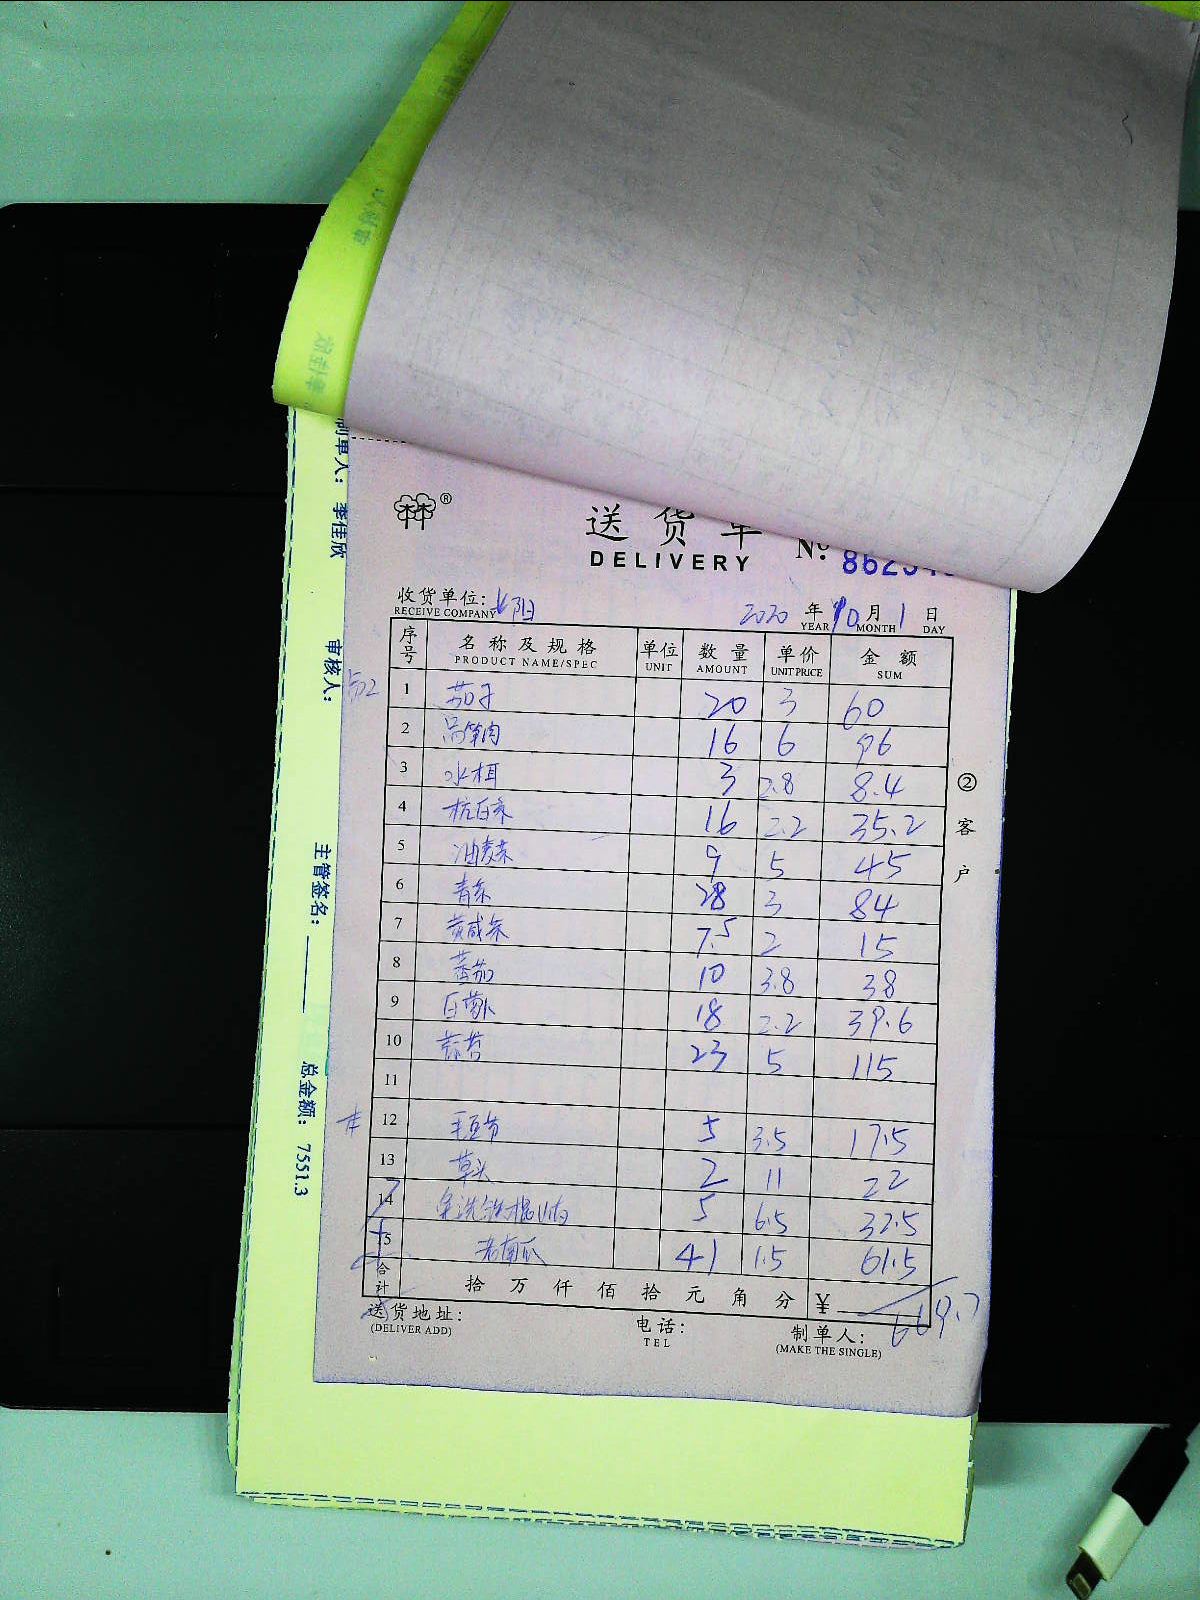 送货单 №: 86254
DELIVERY
收货单位: 阳 2020 年 10 月 1 日
RECEIVE COMPANY YEAR MONTH DAY
序号 名称及规格 单位 数量 单价 金额
PRODUCT NAME/SPEC UNIT AMOUNT UNIT PRICE SUM
1 茄子 20 3 60
2 莴笋肉 16 6 96
3 水桔 3 2.8 8.4
4 杭白菜 16 2.2 35.2
5 油麦菜 9 5 45
6 青菜 28 3 84
7 黄咸菜 7.5 2 15
8 蕃茄 10 3.8 38
9 白萝卜 18 2.2 39.6
10 蒜苔 23 5 115
11
12 毛豆节 5 3.5 17.5
13 草头 2 11 22
14 5 6.5 32.5
15 老南瓜 41 1.5 61.5
合计 拾 万 仟 佰 拾 元 角 分 ¥ 669.7
送货地址: 电话: 制单人:
(DELIVER ADD) TEL (MAKE THE SINGLE)
②客户
制单人: 李佳欣 审核人: 主管签名: 总金额: 7551.3